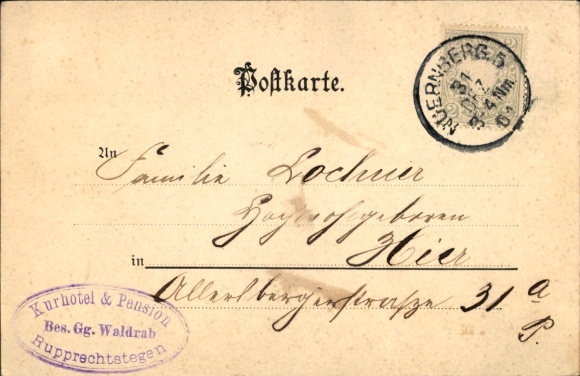 Postkarte.
NUERNBERG.5
31 DEZ
3-4 Nm
01
An Familie Lochner
Hochwohlgeboren
in Hier
Allersbergerstrasze 31 a
P.
Kurhotel & Pension
Bes. Gg. Waldrab
Rupprechtstegen